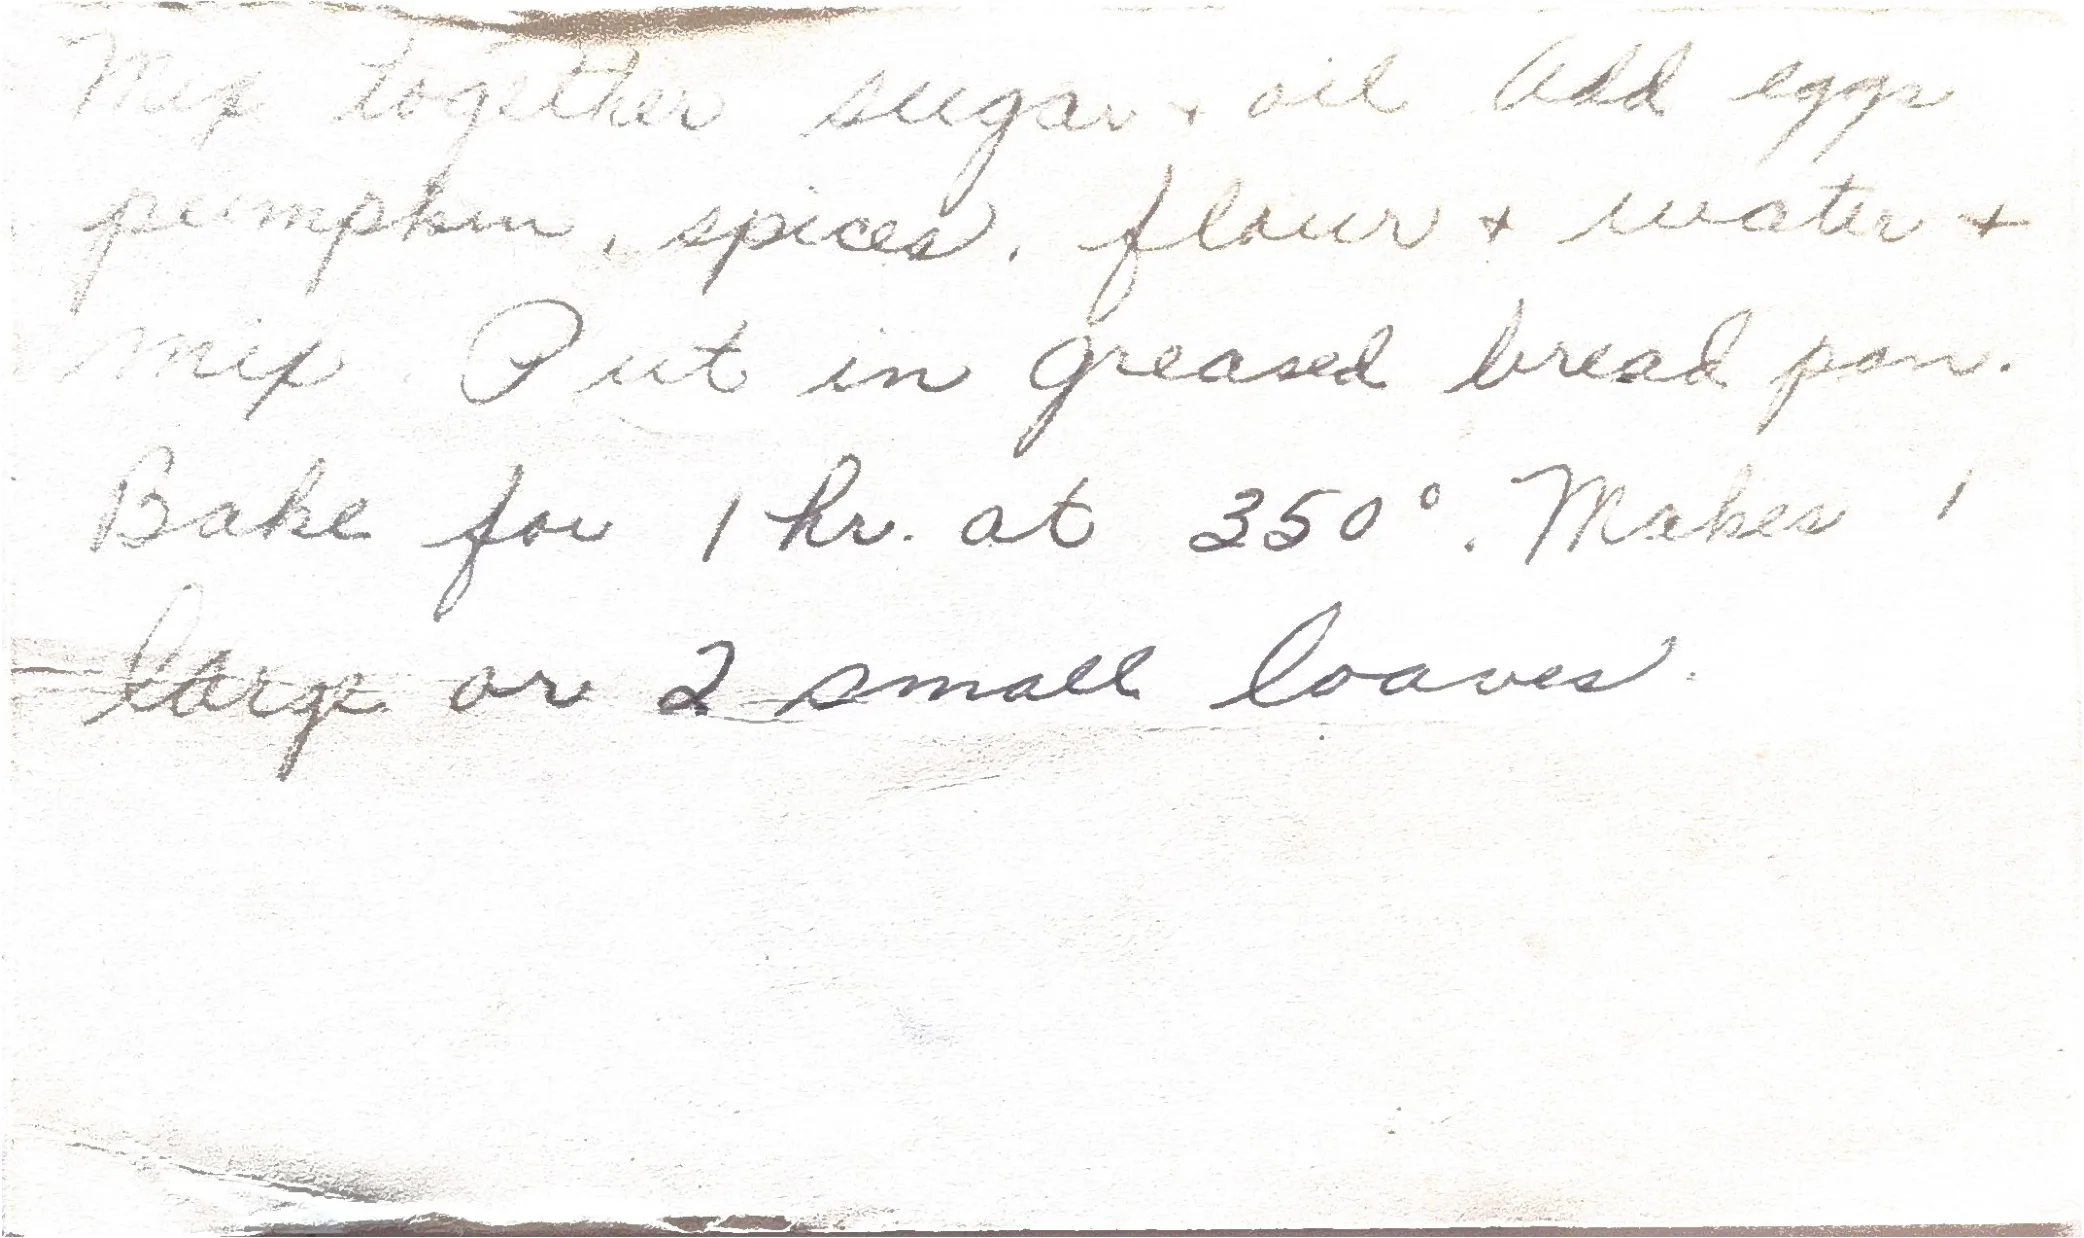 Mix together sugar + oil Add eggs
pumpkin, spices, flour + water +
mix. Put in greased bread pan.
Bake for 1 hr. at 350°. Makes 1
large or 2 small loaves.